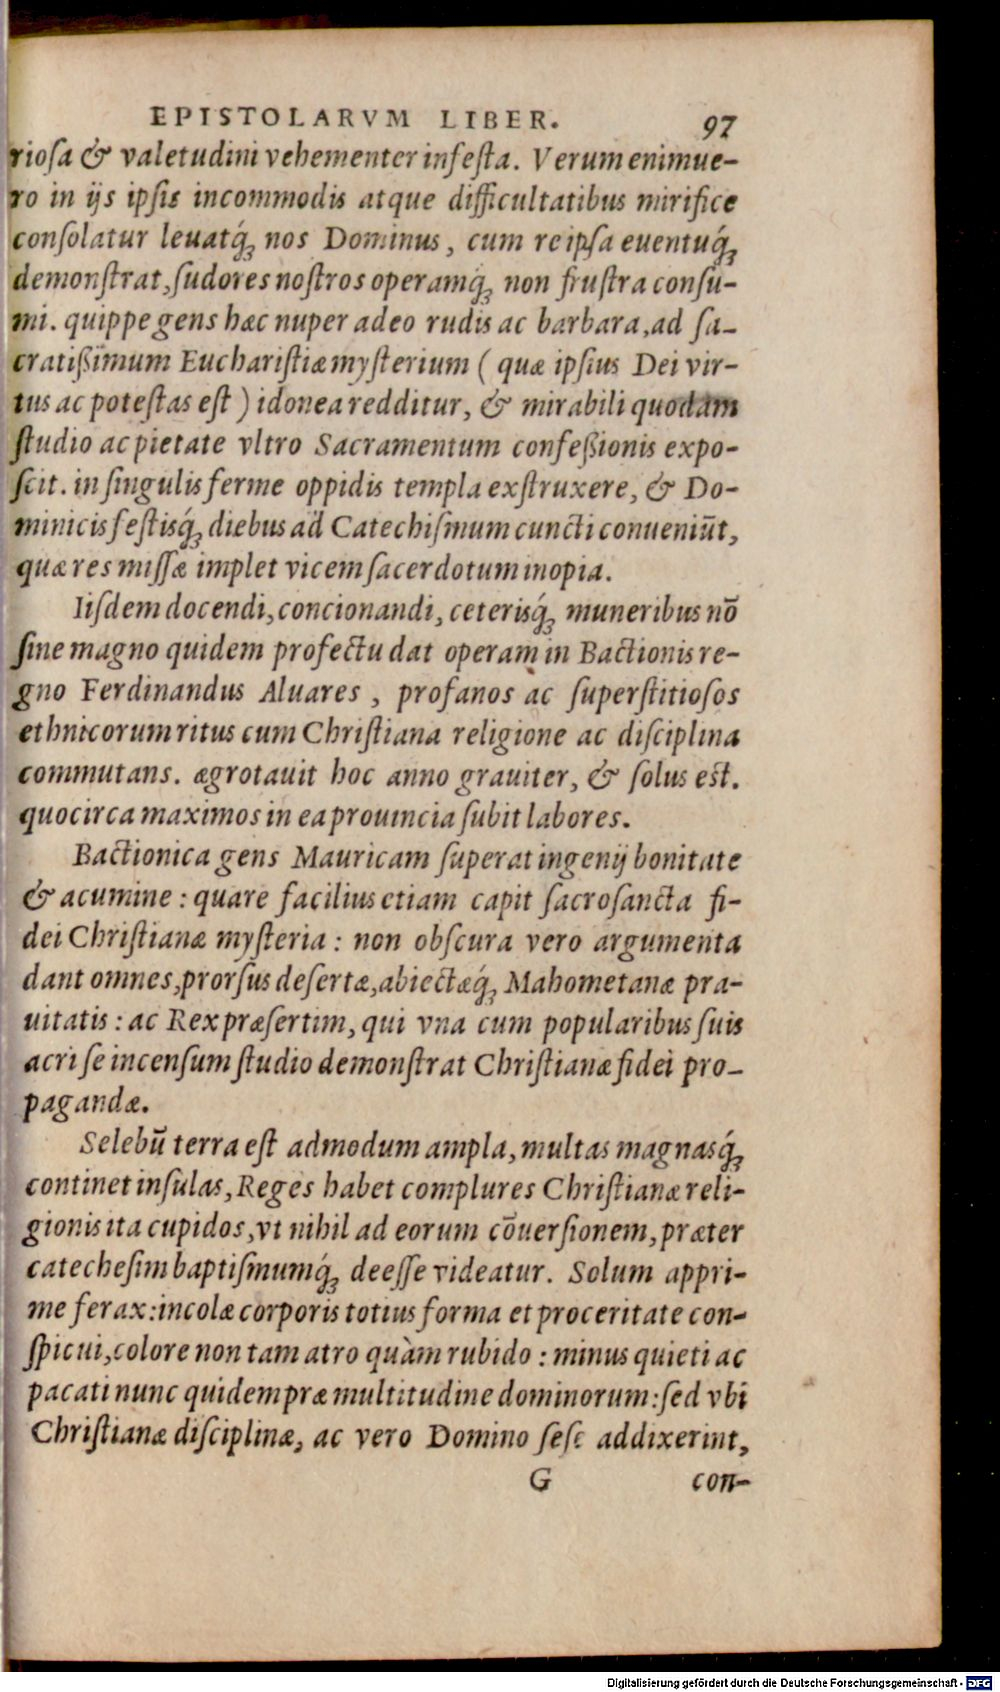 EPISTOLARVM LIBER. 97
rioſa & valetudini vehementer infeſta. Verum enimue-
ro in ijs ipſis incommodis atque difficultatibus mirifice
conſolatur leuatq́ꝫ nos Dominus, cum reipſa euentuq́ꝫ
demonſtrat, ſudores noſtros operamq́ꝫ non fruſtra conſu-
mi. quippe gens hæc nuper adeo rudis ac barbara, ad ſa-
cratißimum Euchariſtiæ myſterium ( quæ ipſius Dei vir-
tus ac poteſtas eſt ) idonea redditur, & mirabili quodam
ſtudio ac pietate vltro Sacramentum confeßionis expo-
ſcit. in ſingulis ferme oppidis templa exſtruxere, & Do-
minicis feſtisq́ꝫ diebus ad Catechiſmum cuncti conueniũt,
quæ res miſſæ implet vicem ſacerdotum inopia.
Iiſdem docendi, concionandi, ceterisq́ꝫ muneribus nō
ſine magno quidem profectu dat operam in Bactionis re-
gno Ferdinandus Aluares , profanos ac ſuperſtitioſos
ethnicorum ritus cum Chriſtiana religione ac diſciplina
commutans. ægrotauit hoc anno grauiter, & ſolus eſt.
quocirca maximos in ea prouincia ſubit labores.
Bactionica gens Mauricam ſuperat ingenij bonitate
& acumine : quare facilius etiam capit ſacroſancta fi-
dei Chriſtianæ myſteria : non obſcura vero argumenta
dant omnes, prorſus deſertæ, abiectæq́ꝫ Mahometanæ pra-
uitatis : ac Rex præſertim, qui vna cum popularibus ſuis
acri ſe incenſum ſtudio demonſtrat Chriſtianæ fidei pro-
pagandæ.
Selebũ terra eſt admodum ampla, multas magnasq́ꝫ
continet inſulas, Reges habet complures Chriſtianæ reli-
gionis ita cupidos, vt nihil ad eorum cōuerſionem, præter
catecheſim baptiſmumq́ꝫ deeſſe videatur. Solum appri-
me ferax: incolæ corporis totius forma et proceritate con-
ſpicui, colore non tam atro quàm rubido : minus quieti ac
pacati nunc quidem præ multitudine dominorum: ſed vbi
Chriſtianæ diſciplinæ, ac vero Domino ſeſe addixerint,
G con-
Digitalisierung gefördert durch die Deutsche Forschungsgemeinschaft - DFG